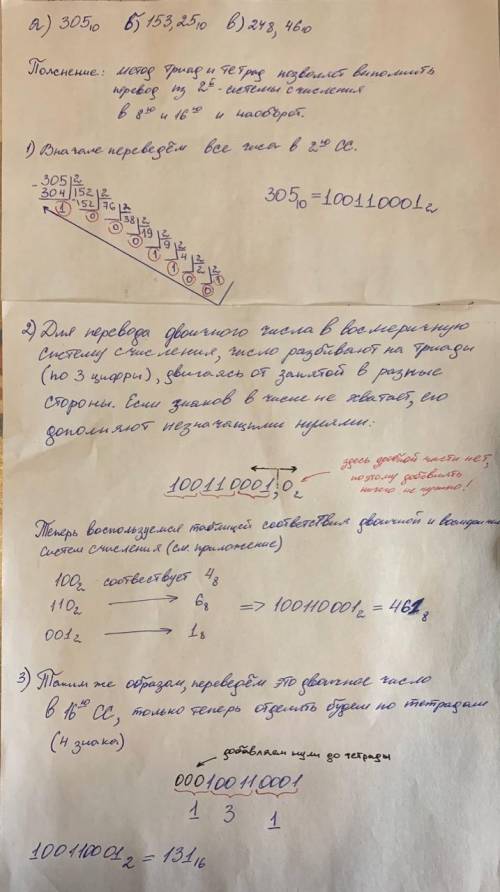 а) 305₁₀ б) 153,25₁₀ в) 248,46₁₀
Пояснение: метод триад и тетрад позволяет выполнить
перевод из 2ой системы счисления
в 8ую и 16ую и наоборот.
1) Вначале переведём все числа в 2ую СС.
305 2
304 152 2
1 152 76 2
0 38 2
0 19 2
0 9 2
1 4 2
1 2 2
0 1
0
305₁₀ = 100110001₂
2) Для перевода двоичного числа в восмеричную
систему счисления, число разбивают на триады
(по 3 цифры), двигаясь от запятой в разные
стороны. Если знаков в числе не хватает, его
дополняют незначащими нулями:
100110001,0₂
здесь дробной части нет,
поэтому добавлять
ничего не нужно!
Теперь воспользуемся таблицей соответствия двоичной и
систем счисления (см. приложение)
100₂ соотвествует 4₈
110₂ → 6₈ => 100110001₂ = 461₈
001₂ → 1₈
3) Таким же образом, переведём это двоичное число
в 16ую СС, только теперь отделять будем по тетрадам
(4 знака)
добавляем нули до тетрады
000100110001
1 3 1
100110001₂ = 131₁₆